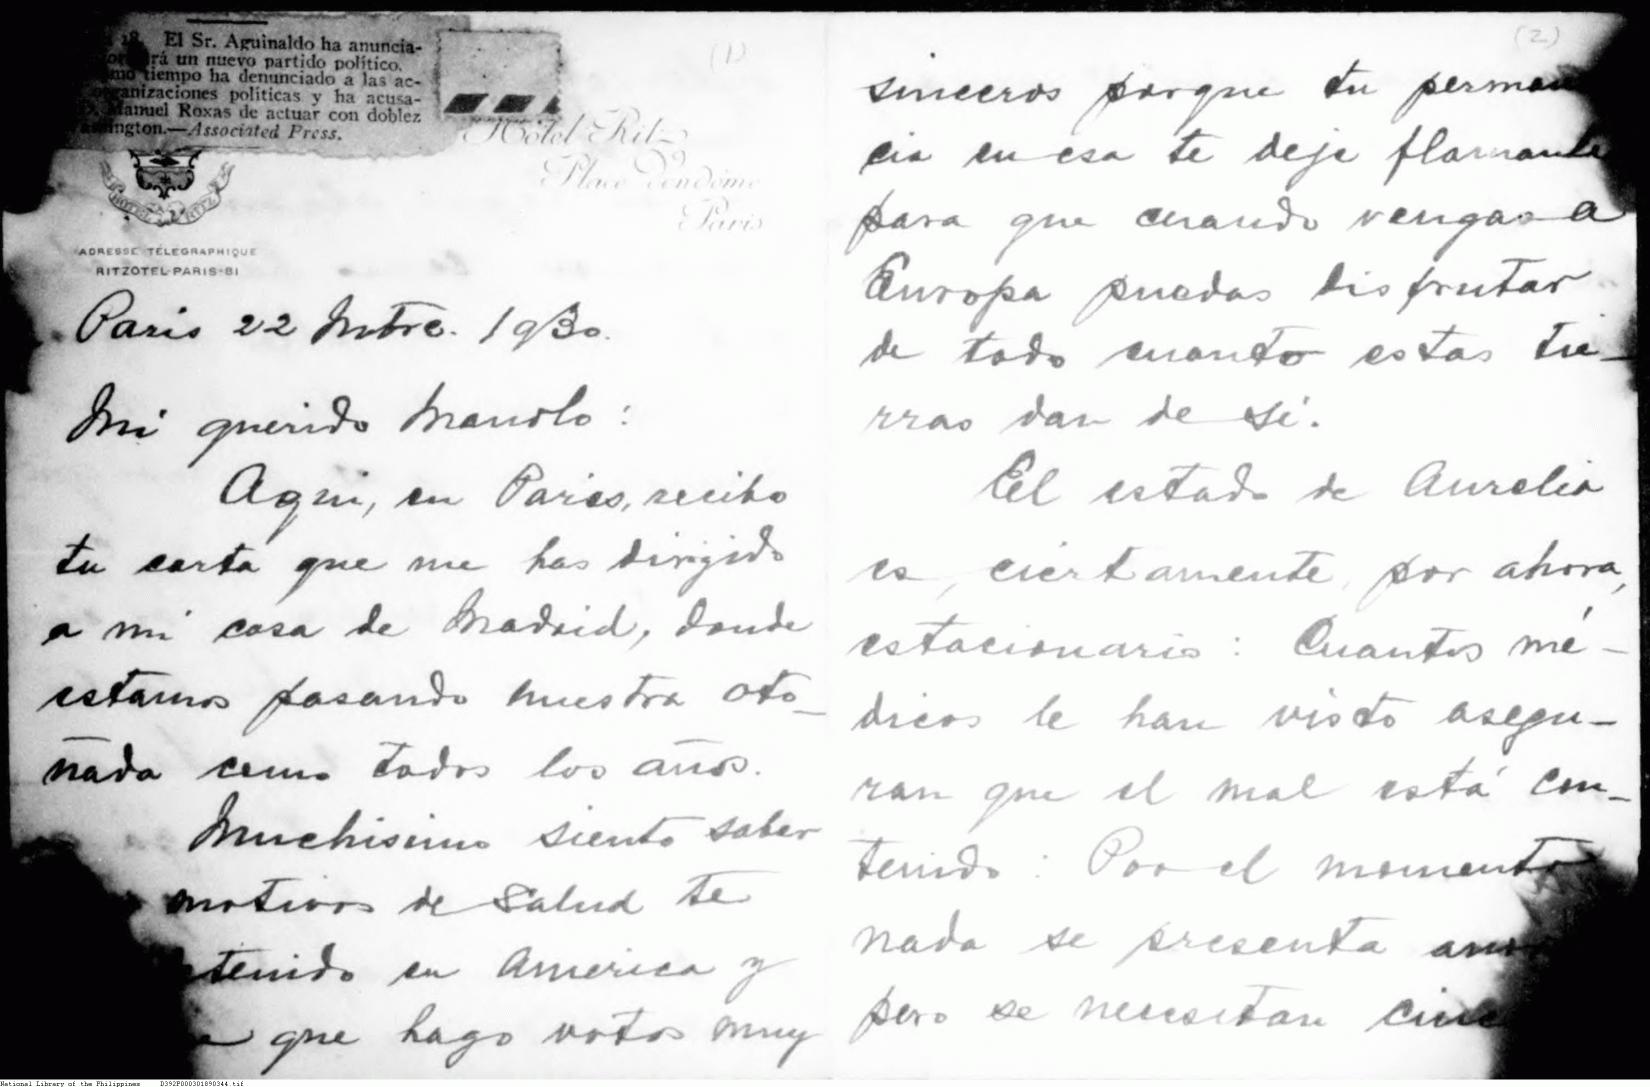 28. El Sr. Aguinaldo ha anuncia-
rá un nuevo partido político.
mo tiempo ha denunciado a las ac-
ganizaciones políticas y ha acusa-
Manuel Roxas de actuar con doblez
ington.—Associated Press.
Hôtel Ritz
Place Vendôme
Paris
HOTEL RITZ
ADRESSE TÉLÉGRAPHIQUE
RITZOTEL-PARIS-81
(1)
Paris 22 Nbre. 1930.
Mi querido Manolo:
Aqui, en Paris, recibo
tu carta que me has dirigido
a mi casa de Madrid, donde
estamos pasando nuestra oto-
ñada como todos los años.
Muchisimo siento saber
motivos de salud te
tenido en America y
que hago votos muy
(2)
sinceros porque tu perman
cia en esa te deje flamante
para que cuando vengas a
Europa puedas disfrutar
de todo cuanto estas tie-
rras dan de sí.
El estado de Aurelia
es, ciertamente, por ahora,
estacionario: Cuantos mé-
dicos le han visto asegu-
ran que el mal está con-
tenido: Por el momento
nada se presenta
pero se necesitan
National Library of the Philippines D392P000301890344.tif